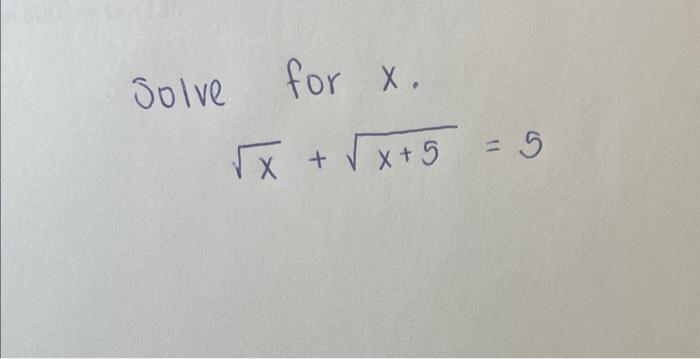 Solve for x.
√x + √x+5 = 5